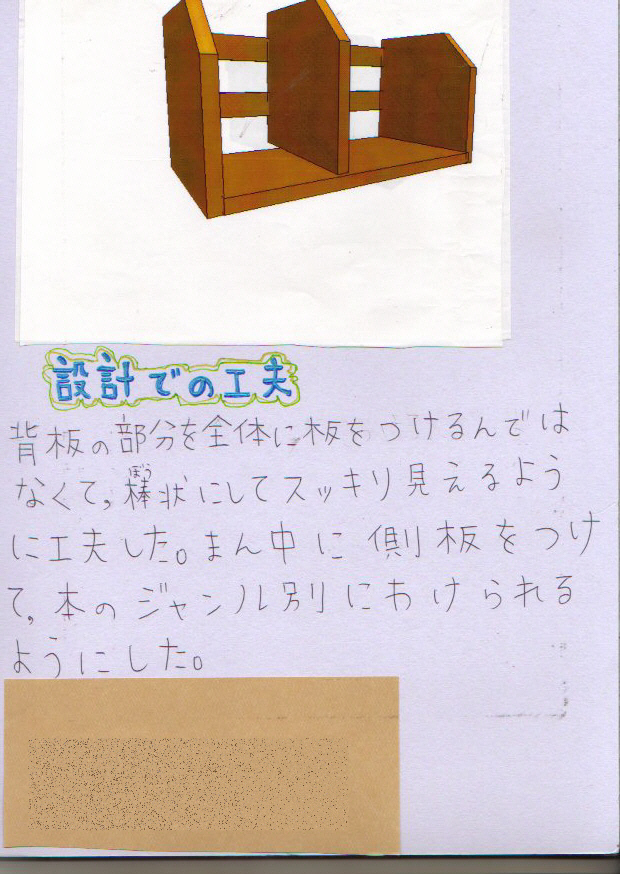 設計での工夫
背板の部分を全体に板をつけるんでは
なくて,棒状にしてスッキリ見えるよう
ぼう
に工夫した。まん中に側板をつけ
て,本のジャンル別にわけられる
ようにした。